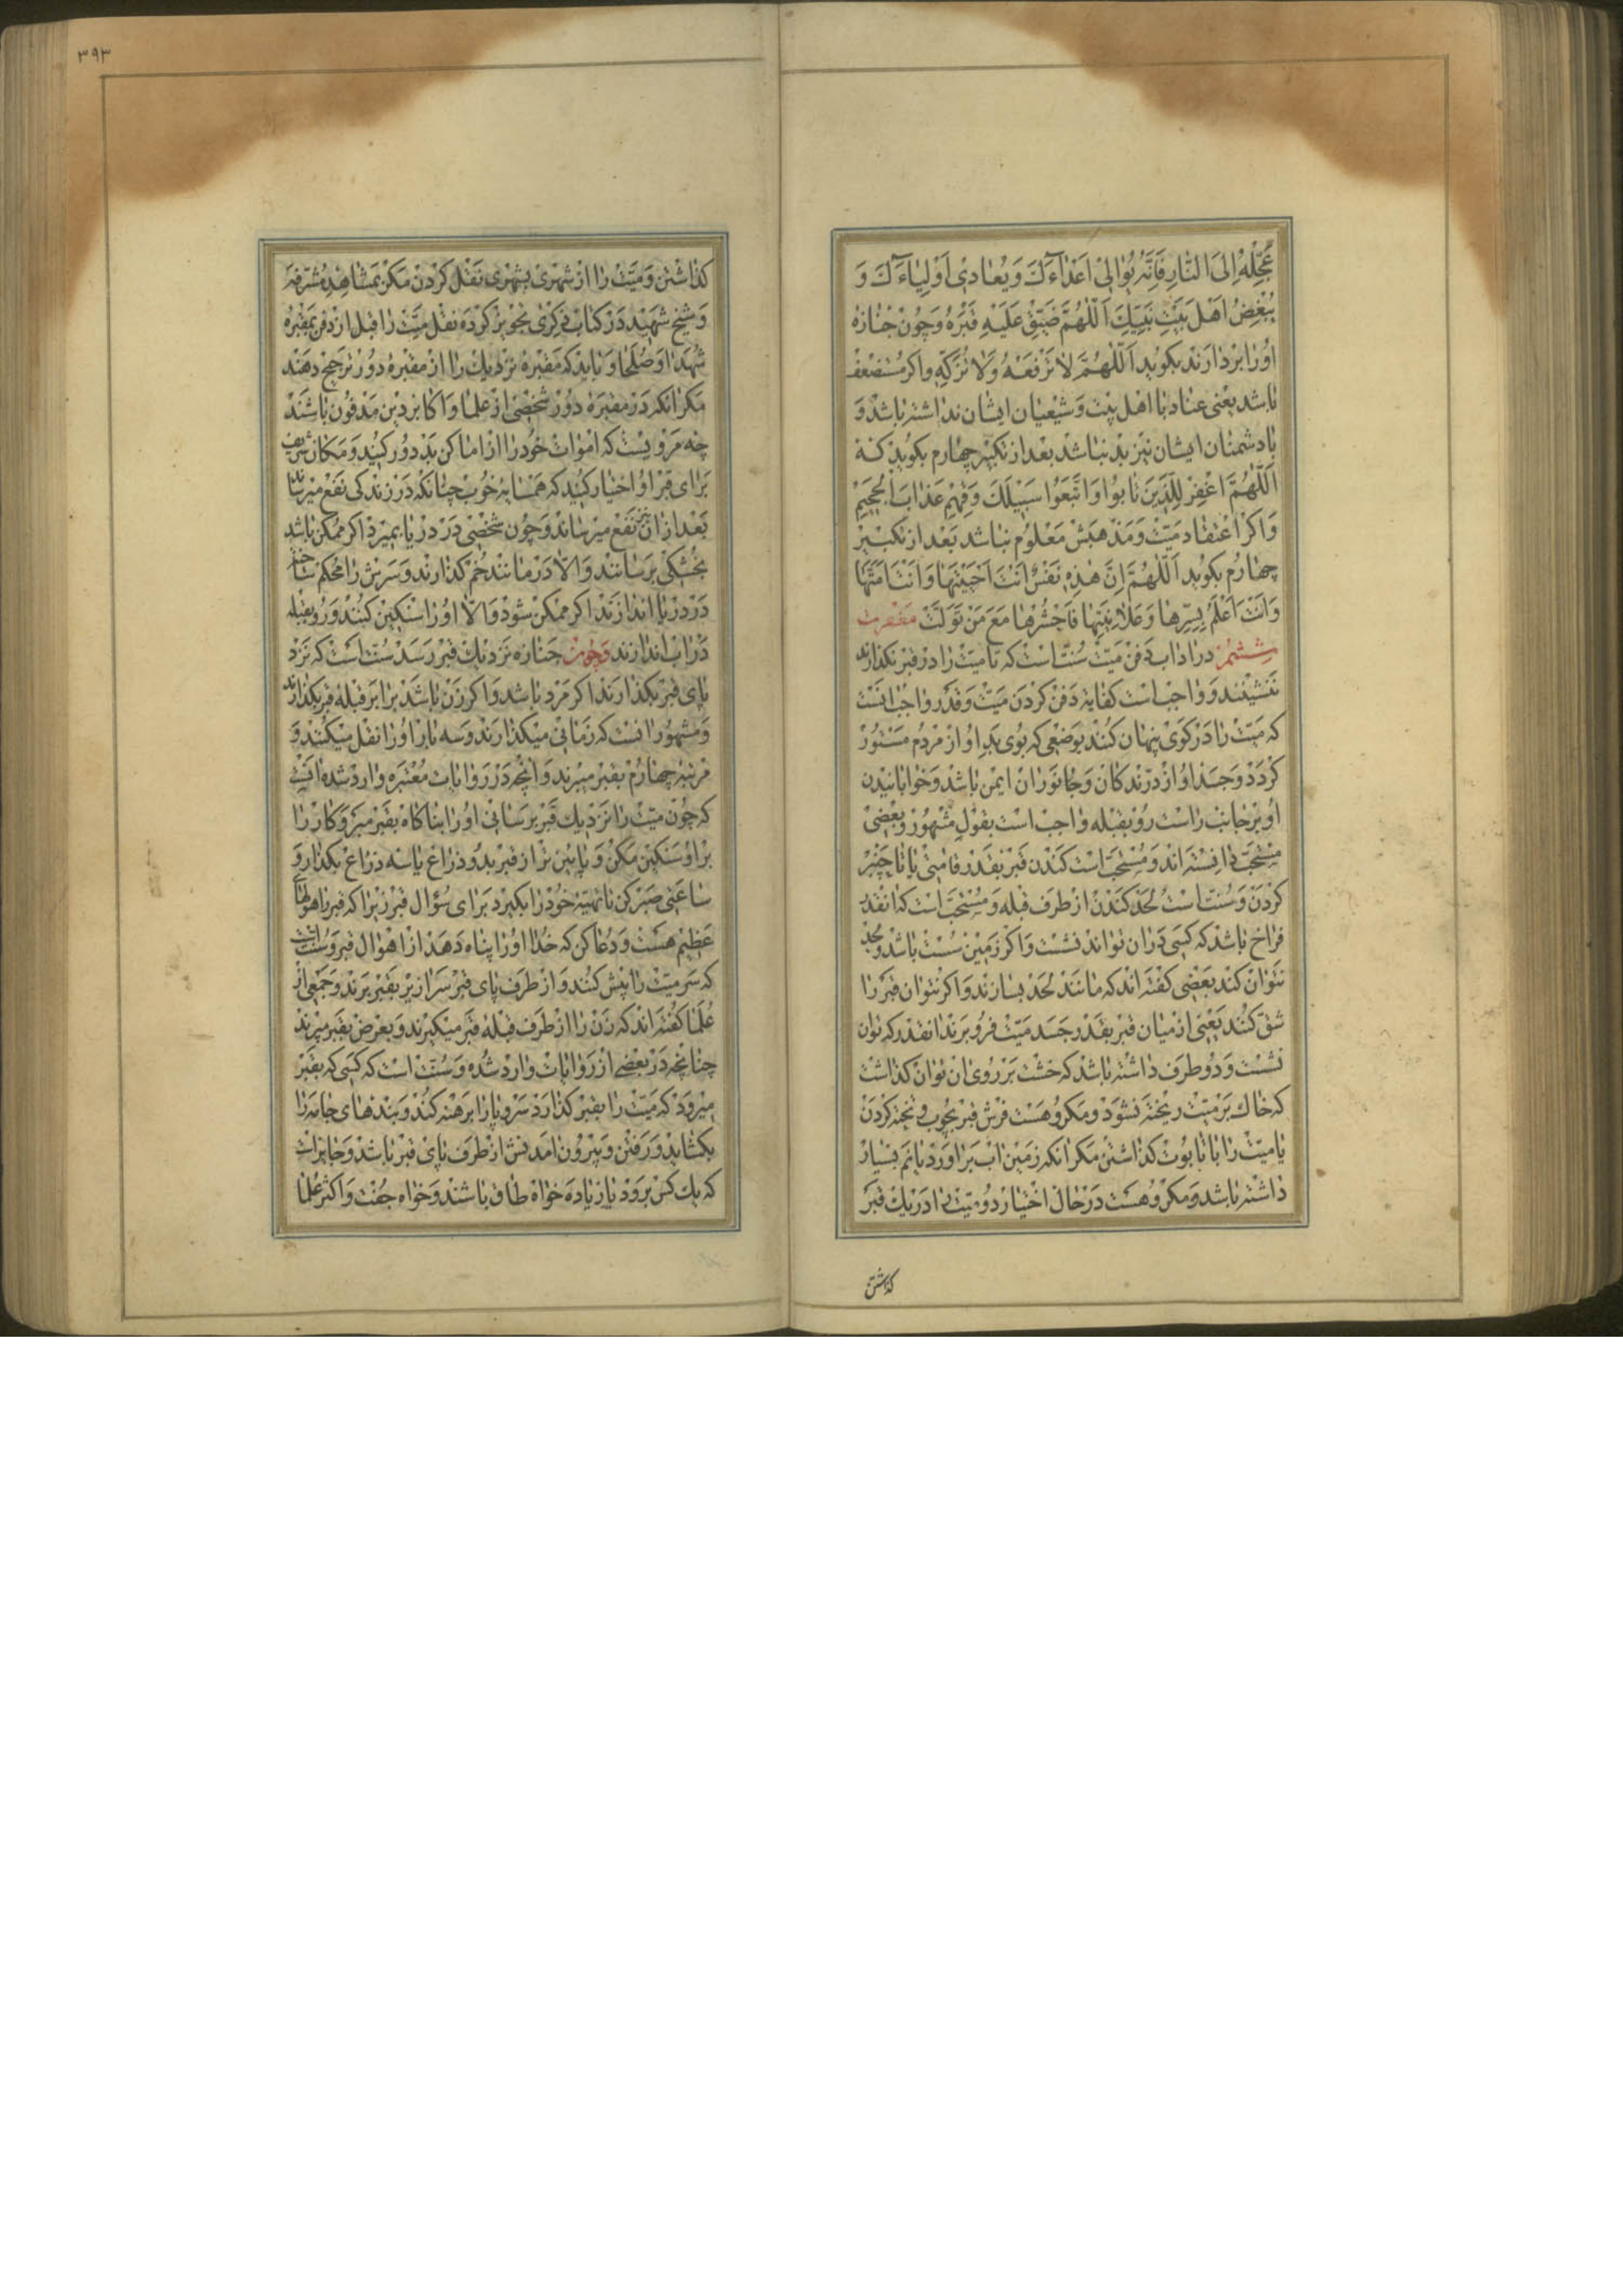 عَجِّلْهُ اِلَی النّارِ فَاِنَّهُ یُوالِی اَعْداءَكَ وَیُعادی اَوْلِیاءَكَ وَ
یُبْغِضُ اَهْلَ بَیْتِ نَبِیِّكَ اَللّهُمَّ ضَیِّقْ عَلَیْهِ قَبْرَهُ وَچون جنازه
او را بردارند بکوید اَللّهُمَّ لا تَرْفَعْهُ وَلا تُزَكِّهِ واکر مستضعف
باشد یعنی عناد با اهل بیت وشیعیان ایشان نداشته باشد و
با دشمنان ایشان نیز بد نباشد بعد از تکبیر چهارم بکوید که
اَللّهُمَّ اغْفِرْ لِلَّذینَ تابُوا وَاتَّبَعُوا سَبیلَكَ وَقِهِمْ عَذابَ الْجَحیمِ
واکر اعتقاد میّت ومذهبش معلوم نباشد بعد از تکبیر
چهارم بکوید اَللّهُمَّ اِنَّ هذِهِ نَفْسٌ اَنْتَ اَحْیَیْتَها وَاَنْتَ اَمَتَّها
وَاَنْتَ اَعْلَمُ بِسِرِّها وَعَلانِیَتِها فَاحْشُرْها مَعَ مَنْ تَوَلَّتْ
ششم در اداب دفن میّت سنّت است که تا میّت را در قبر نکذارند
ننشینند وواجب است کفایة دفن کردن میّت وقدر واجب انست
که میّت را در کوی پنهان کنند بوضعی که بوی بد او از مردم مستور
کردد وجسد او از درّندکان وجانوران ایمن باشد وخوابانیدن
او بر جانب راست رو بقبله واجب است بقول مشهور وبعضی
مستحبّ دانسته اند ومستحبّ است کندن قبر بقدر قامتی یا تا چنبر
کردن وسنّت است لحد کندن از طرف قبله ومستحبّ است که انقدر
فراخ باشد که کسی در ان تواند نشست واکر زمین سست باشد ولحد
نتوان کند بعضی کفته اند که مانند لحد بسازند واکر نتوان قبر را
شقّ کنند یعنی از میان قبر بقدر جسد میّت فرو برند انقدر که توان
نشست ودو طرف داشته باشد که خشت بر روی ان توان کذاشت
که خاك بر میّت ریخته نشود ومکروهست فرش قبر بچوب وتخته کردن
یا میّت را با تابوت کذاشتن مکر انکه زمین اب براورد یا نم بسیار
داشته باشد ومکروهست در حال اختیار دو میّت را در یك قبر
کذاشتن
۳۹۳
کذاشتن ومیّت را از شهری بشهری نقل کردن مکر بمشاهد مشرّفه
وشیخ شهید در کتاب ذکری تجویز کرده نقل میّت را قبل از دفن بمقبره
شهدا وصلحا وباید که مقبره نزدیك را از مقبره دور ترجیح دهند
مکر انکه در مقبره دور شخصی از علما واکابر دین مدفون باشند
چه مرویست که اموات خود را از اماکن بد دور کنید ومکان شریف
برای قبر او اختیار کنید که همسایه خوب چنانکه در زندکی نفع میرساند
بعد از ان نیز نفع میرساند وچون شخصی در دریا بمیرد اکر ممکن باشد
بخشکی برسانند والّا در مانند خم کذارند وسرش را محکم ساخته
در دریا اندازند اکر ممکن شود والّا او را سنکین کنند ورو بقبله
در اب اندازند وچون جنازه نزدیك قبر رسد سنّت است که نزد
پای قبر بکذارند اکر مرد باشد واکر زن باشد برابر قبله قبر بکذارند
ومشهور انست که زمانی میکذارند وسه بار او را نقل میکنند و
مرتبه چهارم بقبر میبرند وانچه در روایات معتبره وارد شده انست
که چون میّت را نزدیك قبر برسانی او را بناکاه بقبر مبر وکار را
بر او سنکین مکن وپایین تر از قبر بدو ذراع یا سه ذراع بکذار و
ساعتی صبر کن تا تهیّه خود را بکیرد برای سؤال قبر زیرا که قبر را هولهای
عظیم هست ودعا کن که خدا او را پناه دهد از اهوال قبر وسنّت است
که سر میّت را پیش کنند واز طرف پای قبر سرازیر بقبر برند وجمعی از
علما کفته اند که زن را از طرف قبله قبر میکیرند وبعرض بقبر میبرند
چنانچه در بعضی از روایات وارد شده وسنّت است که کسی که بقبر
میرود که میّت را بقبر کذارد سر وپا را برهنه کند وبندهای جامه را
بکشاید ورفتن وبیرون امدنش از طرف پای قبر باشد وجایز است
که یك کس برود یا زیاده خواه طاق باشند وخواه جفت واکثر علما